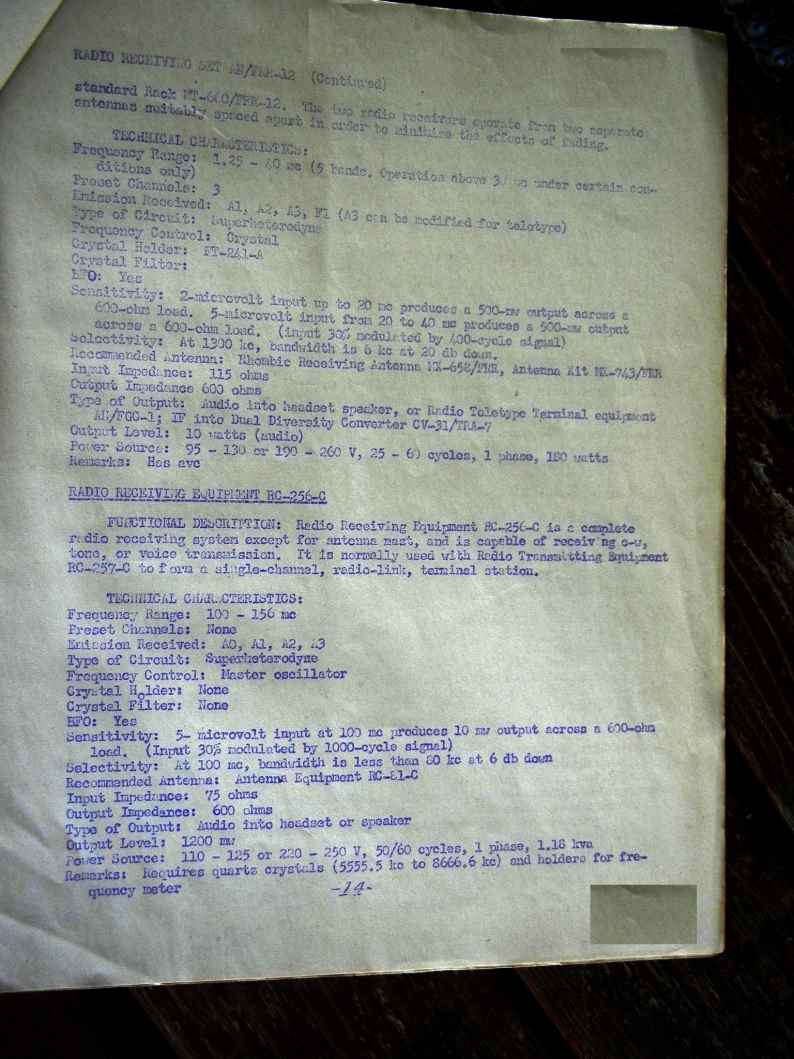 RADIO RECEIVING SET AN/FRR-12 (Continued)
standard Rack MT-686/FRR-12. The two radio receivers operate from two separate
antennas suitably spaced apart in order to minimize the effects of fading.
TECHNICAL CHARACTERISTICS:
Frequency Range: 1.25 - 40 mc (5 bands. Operation above 30 mc under certain con-
ditions only)
Preset Channels: 3
Emission Received: A1, A2, A3, F1 (A3 can be modified for teletype)
Type of Circuit: Superheterodyne
Frequency Control: Crystal
Crystal Holder: FT-241-A
Crystal Filter:
BFO: Yes
Sensitivity: 2-microvolt input up to 20 mc produces a 500-mw output across a
600-ohm load. 5-microvolt input from 20 to 40 mc produces a 500-mw output
across a 600-ohm load. (input 30% modulated by 400-cycle signal)
Selectivity: At 1300 kc, bandwidth is 6 kc at 20 db down.
Recommended Antenna: Rhombic Receiving Antenna MX-658/FRR, Antenna Kit MK-743/FRR
Input Impedance: 115 ohms
Output Impedance 600 ohms
Type of Output: Audio into headset speaker, or Radio Teletype Terminal equipment
AN/FGC-1; IF into Dual Diversity Converter CV-31/TRA-7
Output Level: 10 watts (audio)
Power Source: 95 - 130 or 190 - 260 V, 25 - 60 cycles, 1 phase, 180 watts
Remarks: Has avc
RADIO RECEIVING EQUIPMENT RC-256-C
FUNCTIONAL DESCRIPTION: Radio Receiving Equipment RC-256-C is a complete
radio receiving system except for antenna mast, and is capable of receiving c-w,
tone, or voice transmission. It is normally used with Radio Transmitting Equipment
RC-257-C to form a single-channel, radio-link, terminal station.
TECHNICAL CHARACTERISTICS:
Frequency Range: 100 - 156 mc
Preset Channels: None
Emission Received: A0, A1, A2, A3
Type of Circuit: Superheterodyne
Frequency Control: Master oscillator
Crystal Holder: None
Crystal Filter: None
BFO: Yes
Sensitivity: 5- microvolt input at 100 mc produces 10 mw output across a 600-ohm
load. (Input 30% modulated by 1000-cycle signal)
Selectivity: At 100 mc, bandwidth is less than 80 kc at 6 db down
Recommended Antenna: Antenna Equipment RC-81-C
Input Impedance: 75 ohms
Output Impedance: 600 ohms
Type of Output: Audio into headset or speaker
Output Level: 1200 mw
Power Source: 110 - 125 or 220 - 250 V, 50/60 cycles, 1 phase, 1.18 kva
Remarks: Requires quartz crystals (5555.5 kc to 8666.6 kc) and holders for fre-
quency meter
-14-